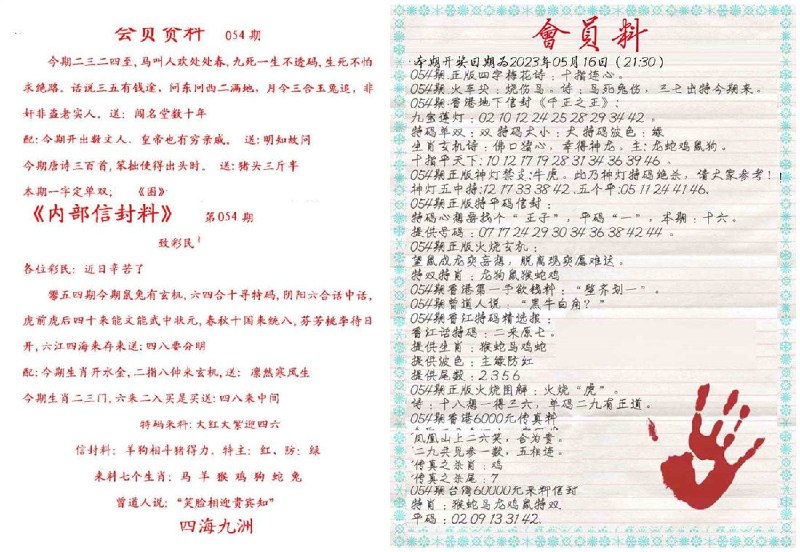 会员资料 054期
今期二三二四至,马叫人欢处处春,九死一生不透码,生死不怕
求绝路。话说三五有钱途,问东问西二满地,月令三合玉兔追,非
奸非盗老实人。送:闻名堂数十年
配:今期开出数文人。皇帝也有穷亲戚。 送:明知故问
今期唐诗三百首,笨拙使得出头时。 送:猪头三斤半
本期一字定单双: 《围》
《内部信封料》 第054期
致彩民
各位彩民: 近日辛苦了
零五四期今期鼠兔有玄机,六四合十寻特码,阴阳六合话中话,
虎前虎后四十来能文能武中状元,春秋十国来统八,芬芳桃李待日
开,六江四海来存来送:四八要分明
配:今期生肖开水金,二指八仲米玄机,送: 凛然寒风生
今期生肖二三门,六来二八买是买送:四八来中间
特码来料:大红大紫迎四六
信封料: 羊狗相斗猪得力。特主: 红、防: 绿
来料七个生肖: 马 羊 猴 鸡 狗 蛇 兔
曾道人说: “笑脸相迎贵宾知”
四海九洲
會員料
今期开奖日期为2023年05月16日(21:30)
054期.正版四字梅花诗:十指连心。
054期.火车头:烧伤马。诗:马死鬼伤,三七出特今期来。
054期.香港地下信封《千正之王》:
九宝莲灯:02 10 12 24 25 28 29 34 42 。
特码单双:双 特码大小:大 特码波色:绿
生肖玄机诗:佛口猪心,幸得神龙。主:龙蛇鸡鼠狗。
十指平天下:10 12 17 19 28 31 34 36 39 46 、
054期正版神灯禁支:牛虎。此乃神灯特码绝杀,请大家参考!!
神灯五中特:12 17 33 38 42 .五个平:05 11 24 41 46.
054期正版特平码信封:
特码心想要找个“王子”,平码“一”,本期:十六。
提供号码:07 17 24 29 30 34 36 38 42 44 。
054期正版火烧玄机:
望鼠成龙突喜想,脱离现实愿难达。
特双特肖:龙狗鼠猴蛇鸡
054期香港第一字欲钱料:“整齐划一”。
054期曾道人说:“黑牛白角?”
054期晋江特码精选报:
晋江话特码:二来原七。
提供生肖:猴蛇马鸡蛇
提供波色:主绿防红
提供尾数:2.3.5.6
054期正版火烧图解:火烧“虎”。
诗:十八想一得三六,单码二九有正道。
054期香港6000元传真料
凤凰山上二六笑,合为贵。
二九共见参一数,五相连。
传真之杀肖:鸡
传真之杀尾:7
054期台湾60000元来料信封
特肖:猴蛇马龙鸡鼠特双
平码:02 09 13 31 42.